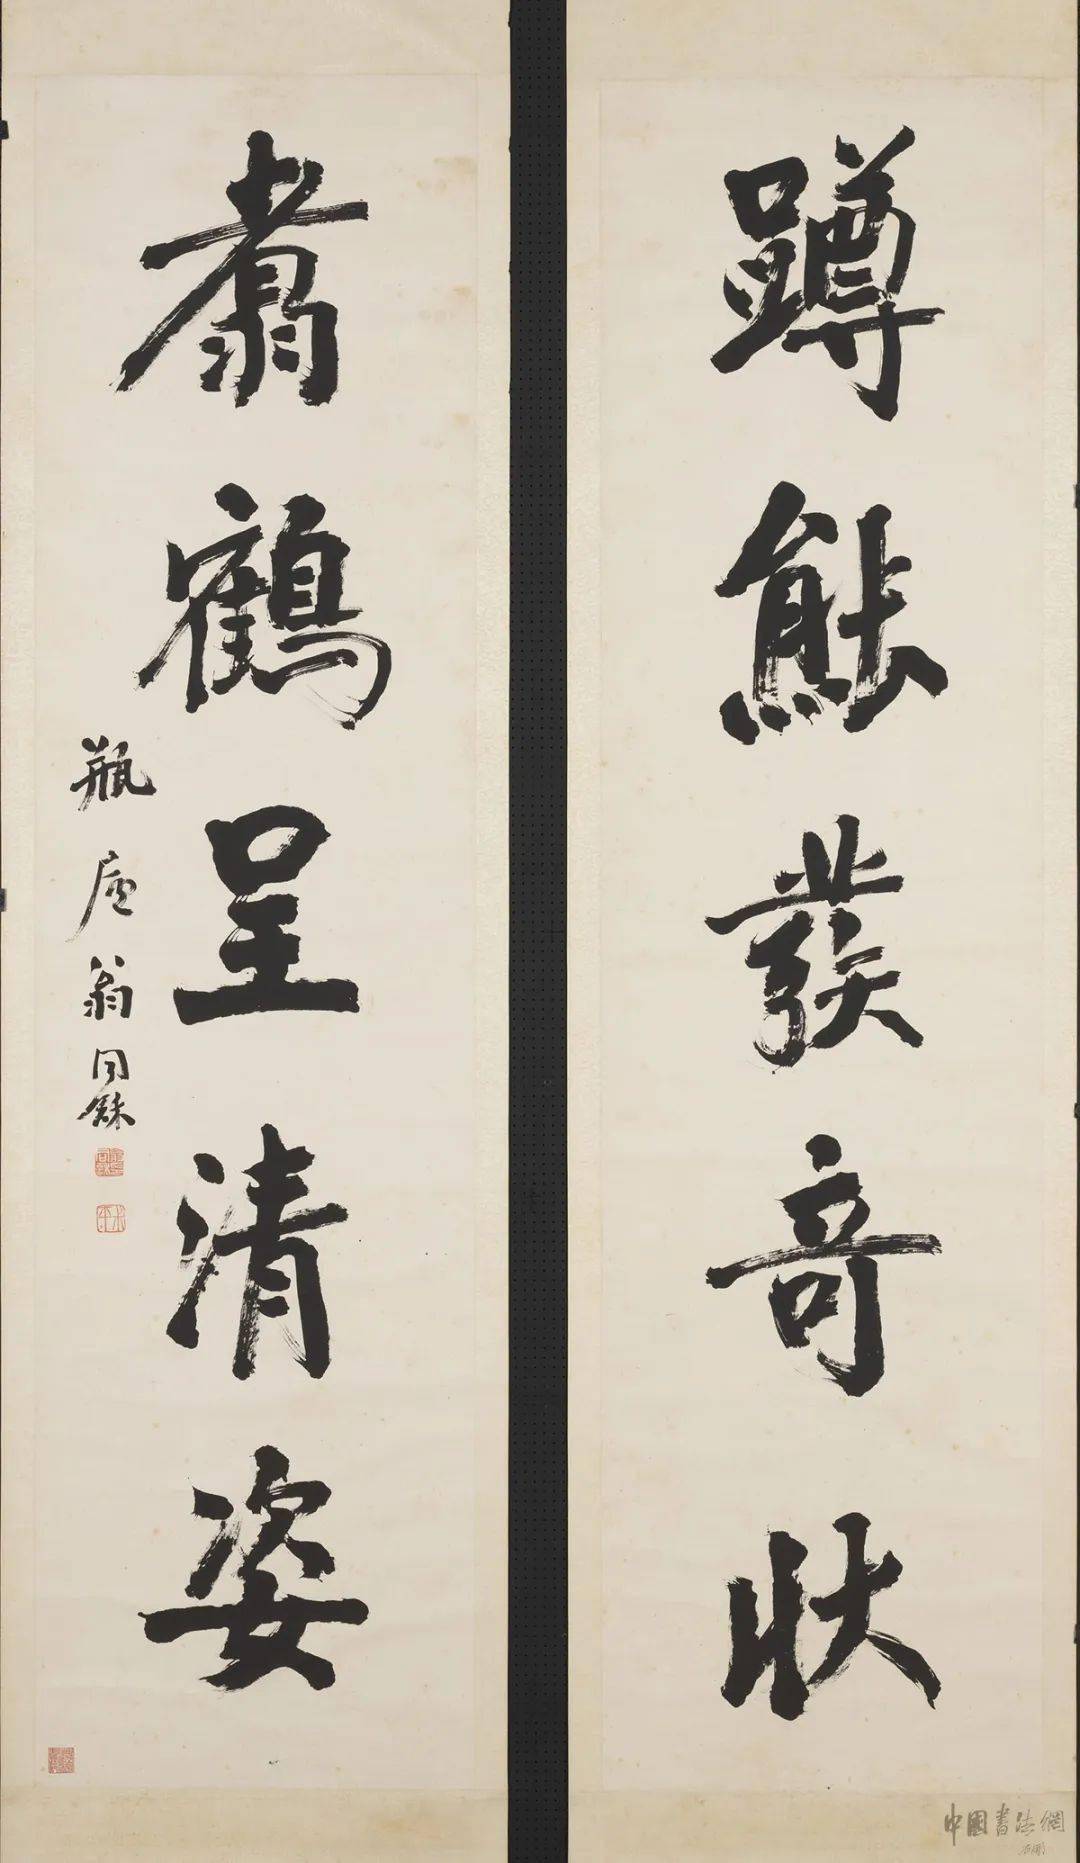 蹲熊發奇狀
翥鶴呈清姿
瓶廬翁同龢
中國書法網